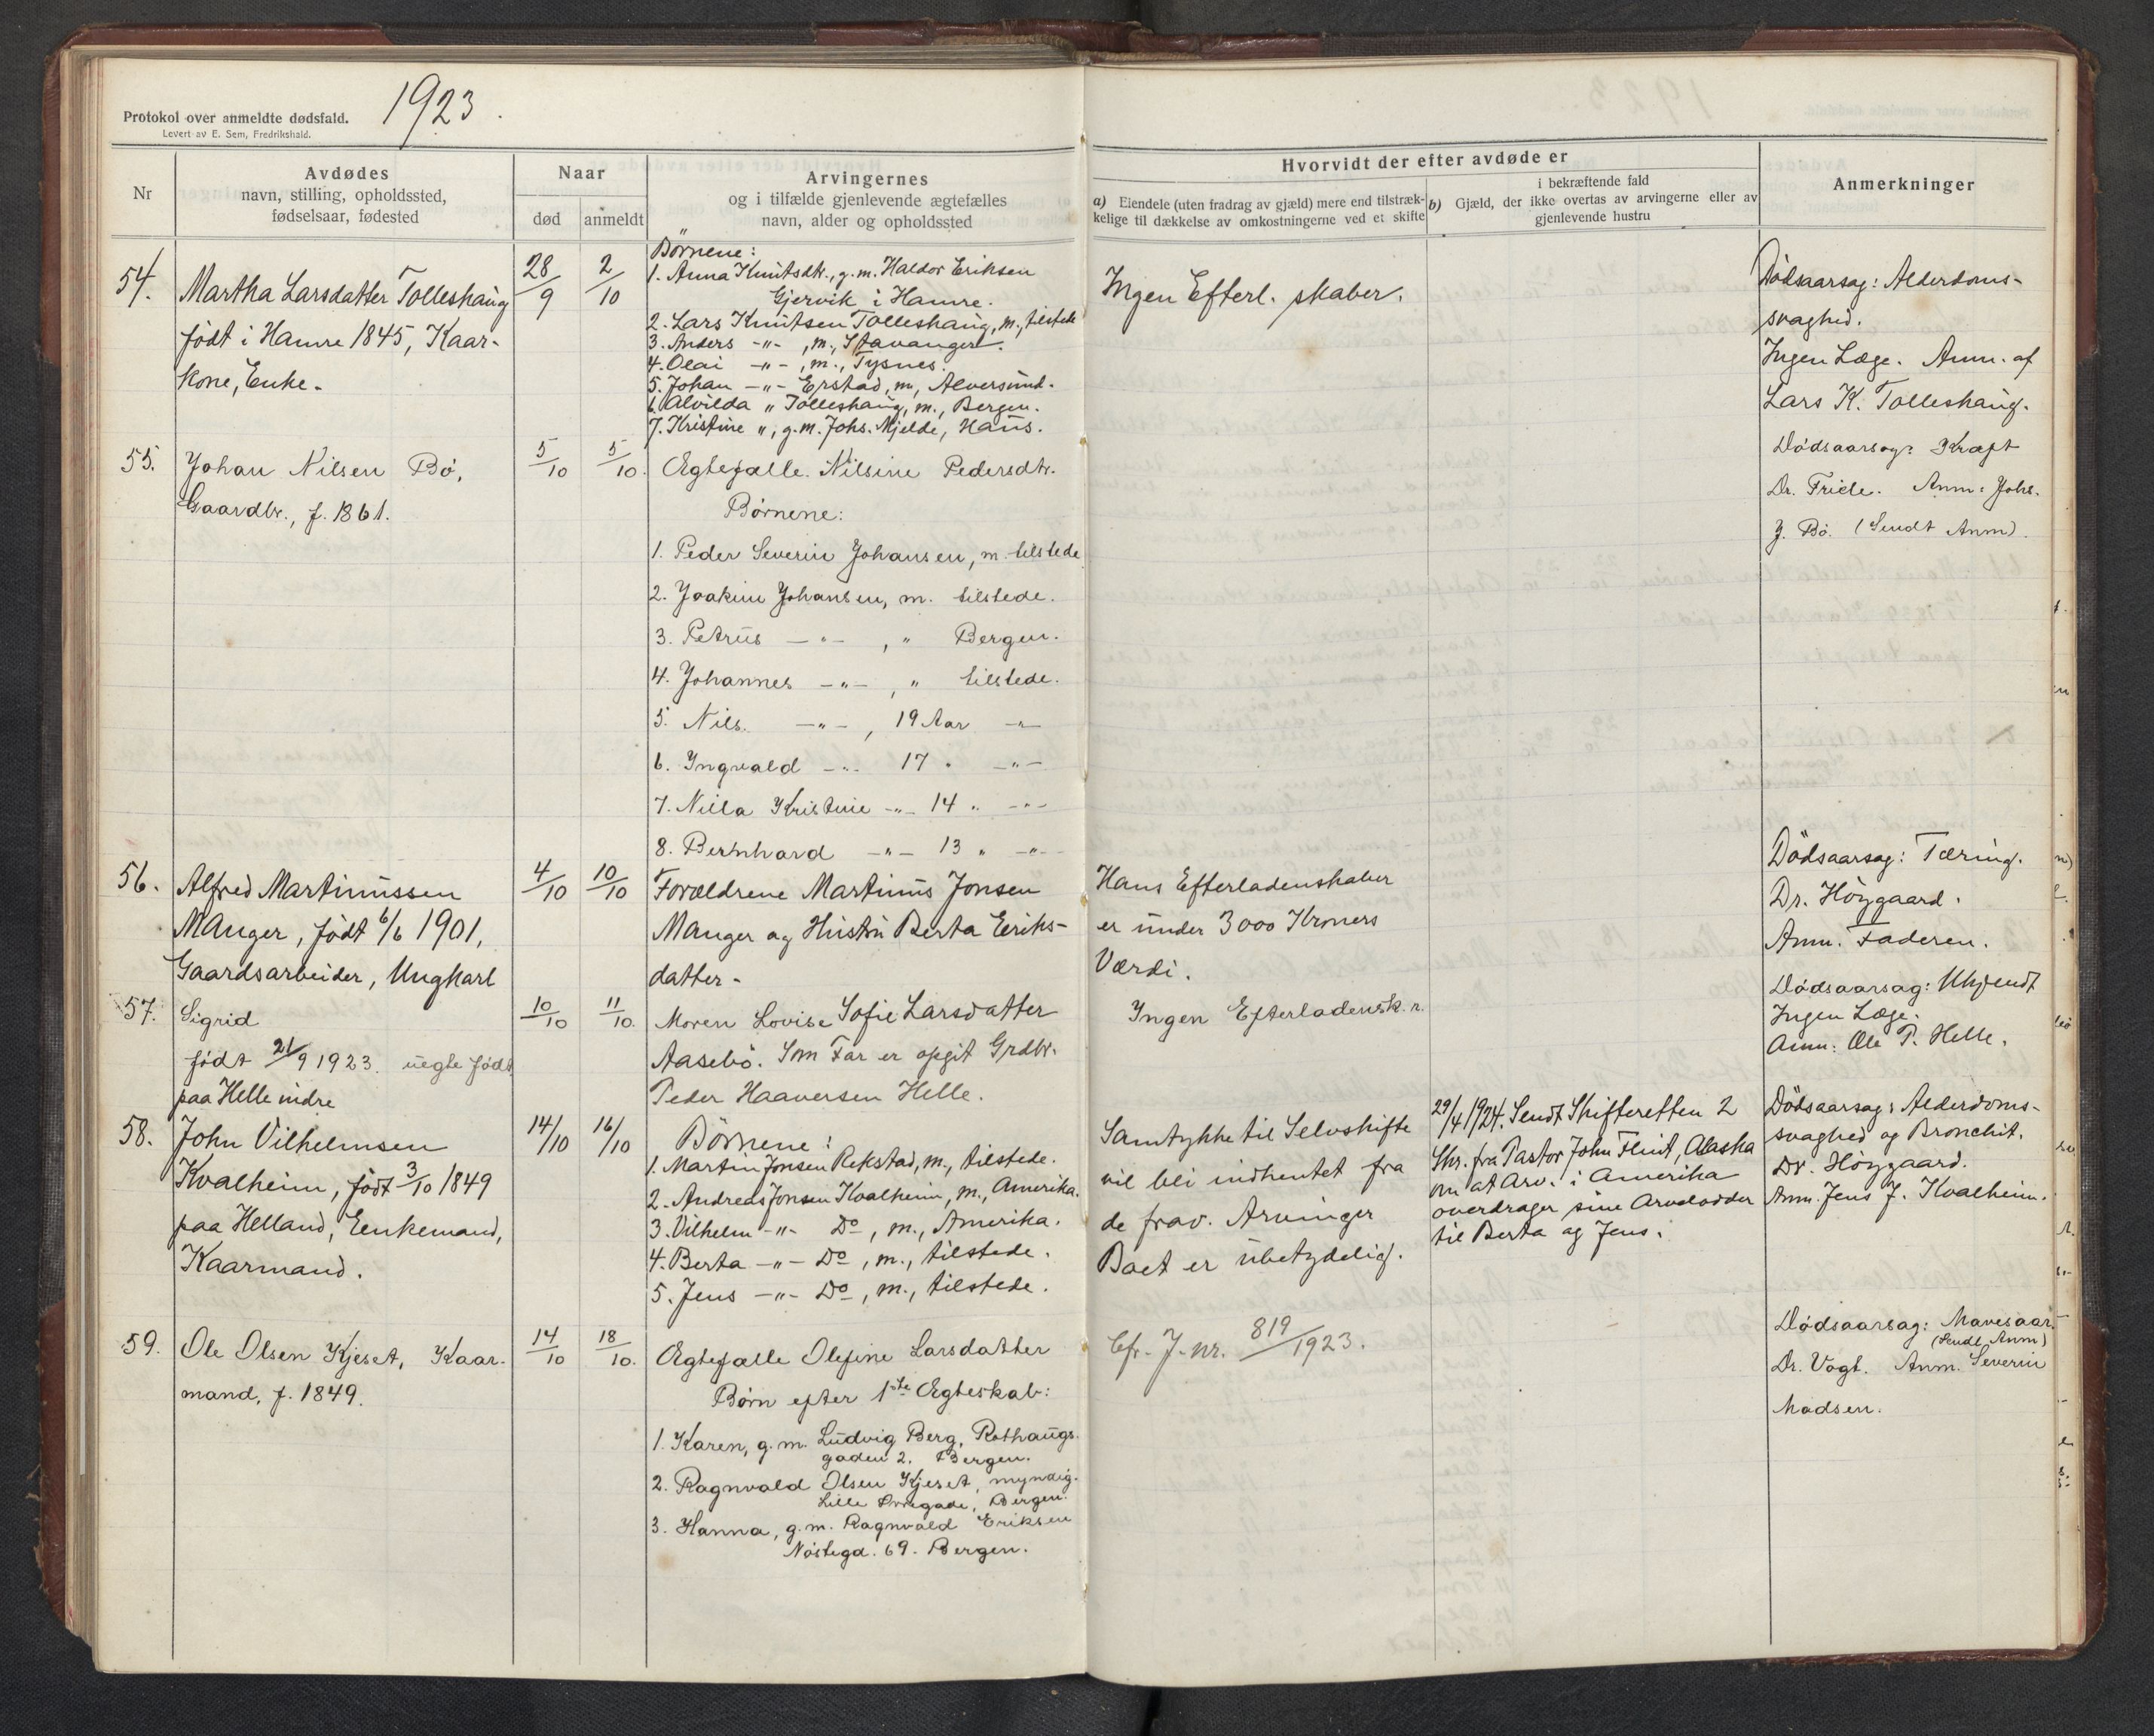 1923.
Protokol over anmeldte dødsfald.
Levert av E. Sem, Fredrikshald.
Nr
Avdødes
navn, stilling, opholdssted,
fødselsaar, fødested
Naar
død
anmeldt
Arvingernes
og i tilfælde gjenlevende ægtefælles
navn, alder og opholdssted
Hvorvidt der efter avdøde er
a) Eiendele (uten fradrag av gjæld) mere end tilstræk-
kelige til dækkelse av omkostningerne ved et skifte
i bekræftende fald
b) Gjæld, der ikke overtas av arvingerne eller av
gjenlevende hustru
Anmerkninger
54.
Martha Larsdatter Tolleshaug
født i Hamre 1845, Kaar-
kone, Enke.
28/9
2/10
Börnene:
1. Anna Knutsdtr., g.m. Haldor Eriksen
Gjervik i Hamre.
2. Lars Knutsen Tolleshaug, m., tilstede
3. Anders -"- , m., Stavanger.
4. Olai -"- , m., Tysnes.
5. Johan -"- Erstad, m., Alversund.
6. Alvilda " Tolleshaug, m., Bergen.
7. Kristine ", g.m. Johs. Mjelde, Haus.
Ingen Efterl. skaber.
Dödsaarsag: Alderdoms-
svaghed.
Ingen Læge. Anm. af
Lars K. Tolleshaug.
55.
Johan Nilsen Bø,
Gaardbr., f. 1861.
5/10
5/10.
Ægtefælle. Nilsine Pedersdtr.
Børnene:
1. Peder Severin Johansen, m. tilstede
2. Joakim Johansen, m. tilstede.
3. Petrus -"- , " Bergen.
4. Johannes -"- , " tilstede.
5. Nils. -"- , 19 Aar -"-
6. Ingvald -"- 17 " -"-
7. Nilla Kristine -"- 14 " -"-
8. Bernhard -"- 13 " -"-
Dødsaarsag: Kræft
Dr. Friele. Anm: Johs.
J. Bø. (Sendt Anm).
56.
Alfred Martinussen
Manger, født 6/6 1901,
Gaardsarbeider, Ungkarl
4/10
10/10
Forældrene Martinus Jonsen
Manger og Hustru Berta Eriks-
datter.
Hans Efterladenskaber
er under 3000 Kroners
Værdi.
Dödsaarsag: Tæring.
Dr. Höygaard.
Anm. Faderen.
57.
Sigrid
født 21/9 1923. uegte født
paa Helle indre
10/10
11/10.
Moren Lovise Sofie Larsdatter
Aasebö. Som Far er opgit Grdbr.
Peder Haaversen Helle.
Ingen Efterladensk.r.
Dødsaarsag: Ukjendt
Ingen Læge.
Anm: Ole P. Helle.
58.
John Vilhelmsen
Kvalheim, født 3/10 1849
paa Helland, Enkemand,
Kaarmand.
14/10
16/10
Börnene:
1. Martin Jonsen Rekstad, m., tilstede.
2. Andreas Jonsen Kvalheim, m., Amerika.
3. Vilhelm -"- Do, m., Amerika.
4. Berta -"- Do, m., tilstede.
5. Jens -"- Do, m., tilstede.
Samtykke til Selvskifte
vil bli indhentet fra
de frav. Arvinger
Boet er ubetydelig.
29/4 1924. Sendt Skifteretten 2
Skr. fra Pastor John Flint, Alaska
om at Arv. i Amerika
overdrager sine Arvelodder
til Berta og Jens.
Dödsaarsag: Alderdoms-
svaghed og Bronchit.
Dr. Höygaard.
Anm. Jens J. Kvalheim.
59.
Ole Olsen Kjeset, Kaar-
mand, f. 1849.
14/10
18/10.
Ægtefælle Olefine Larsdatter
Børn efter 1ste Ægteskab:
1. Karen, g.m. Ludvig Berg, Rothaugs-
gaden 2. Bergen.
2. Ragnvald Olsen Kjeset, myndig.
Lille Øvregade, Bergen.
3. Hanna, g.m. Ragnvald Eriksen
Nøstegd. 69. Bergen.
Cfr. J.nr. 819/1923.
Dødsaarsag: Mavesaar.
(Sendt Anm)
Dr. Vogt. Anm. Severin
Madsen.